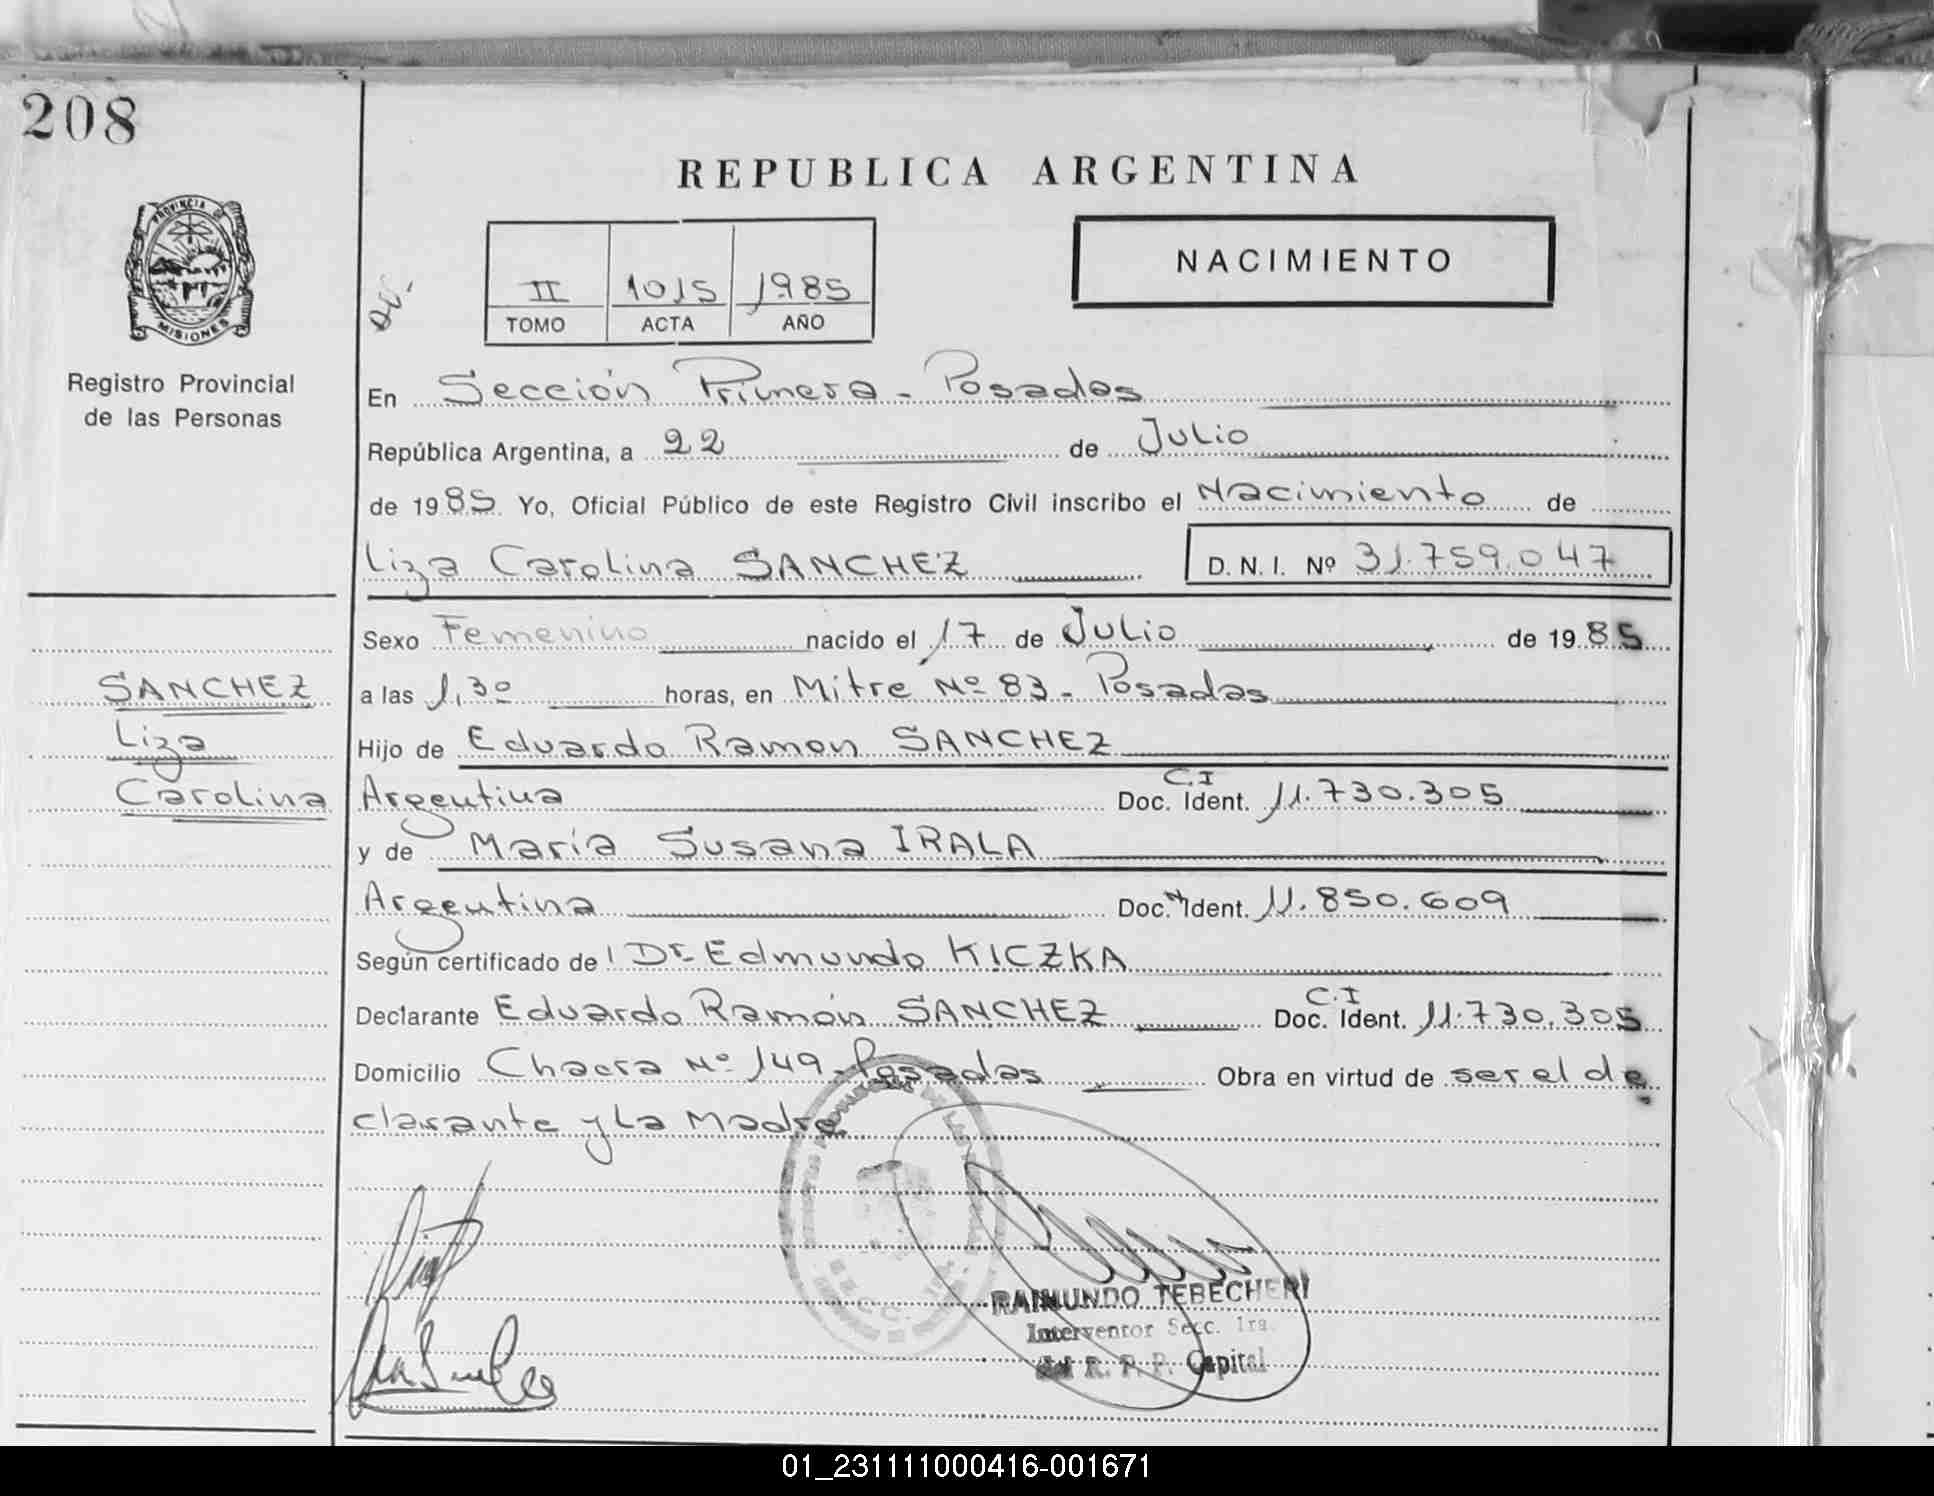 208
REPUBLICA ARGENTINA
PROVINCIA DE
MISIONES
Registro Provincial
de las Personas
II 1015 1985
TOMO ACTA AÑO
NACIMIENTO
En Sección Primera - Posadas
República Argentina, a 22 de Julio
de 1985. Yo, Oficial Público de este Registro Civil inscribo el Nacimiento de
Liza Carolina SANCHEZ D. N. I. Nº 31.759.047
Sexo Femenino nacido el 17 de Julio de 1985
SANCHEZ
a las 1,30 horas, en Mitre Nº 83 - Posadas
Liza
Hijo de Eduardo Ramon SANCHEZ
Carolina
C.I
Argentina Doc. Ident. 11.730.305
y de María Susana IRALA
Argentina Doc. Ident. 11.850.609
Según certificado de Dr. Edmundo KICZKA
C.I
Declarante Eduardo Ramón SANCHEZ Doc. Ident. 11.730.305
Domicilio Chacra Nº 149 - Posadas Obra en virtud de ser el de
clarante y La Madre
RAIMUNDO TEBECHERI
Interventor Secc. 1ra.
del R. P. P. Capital
01_231111000416-001671